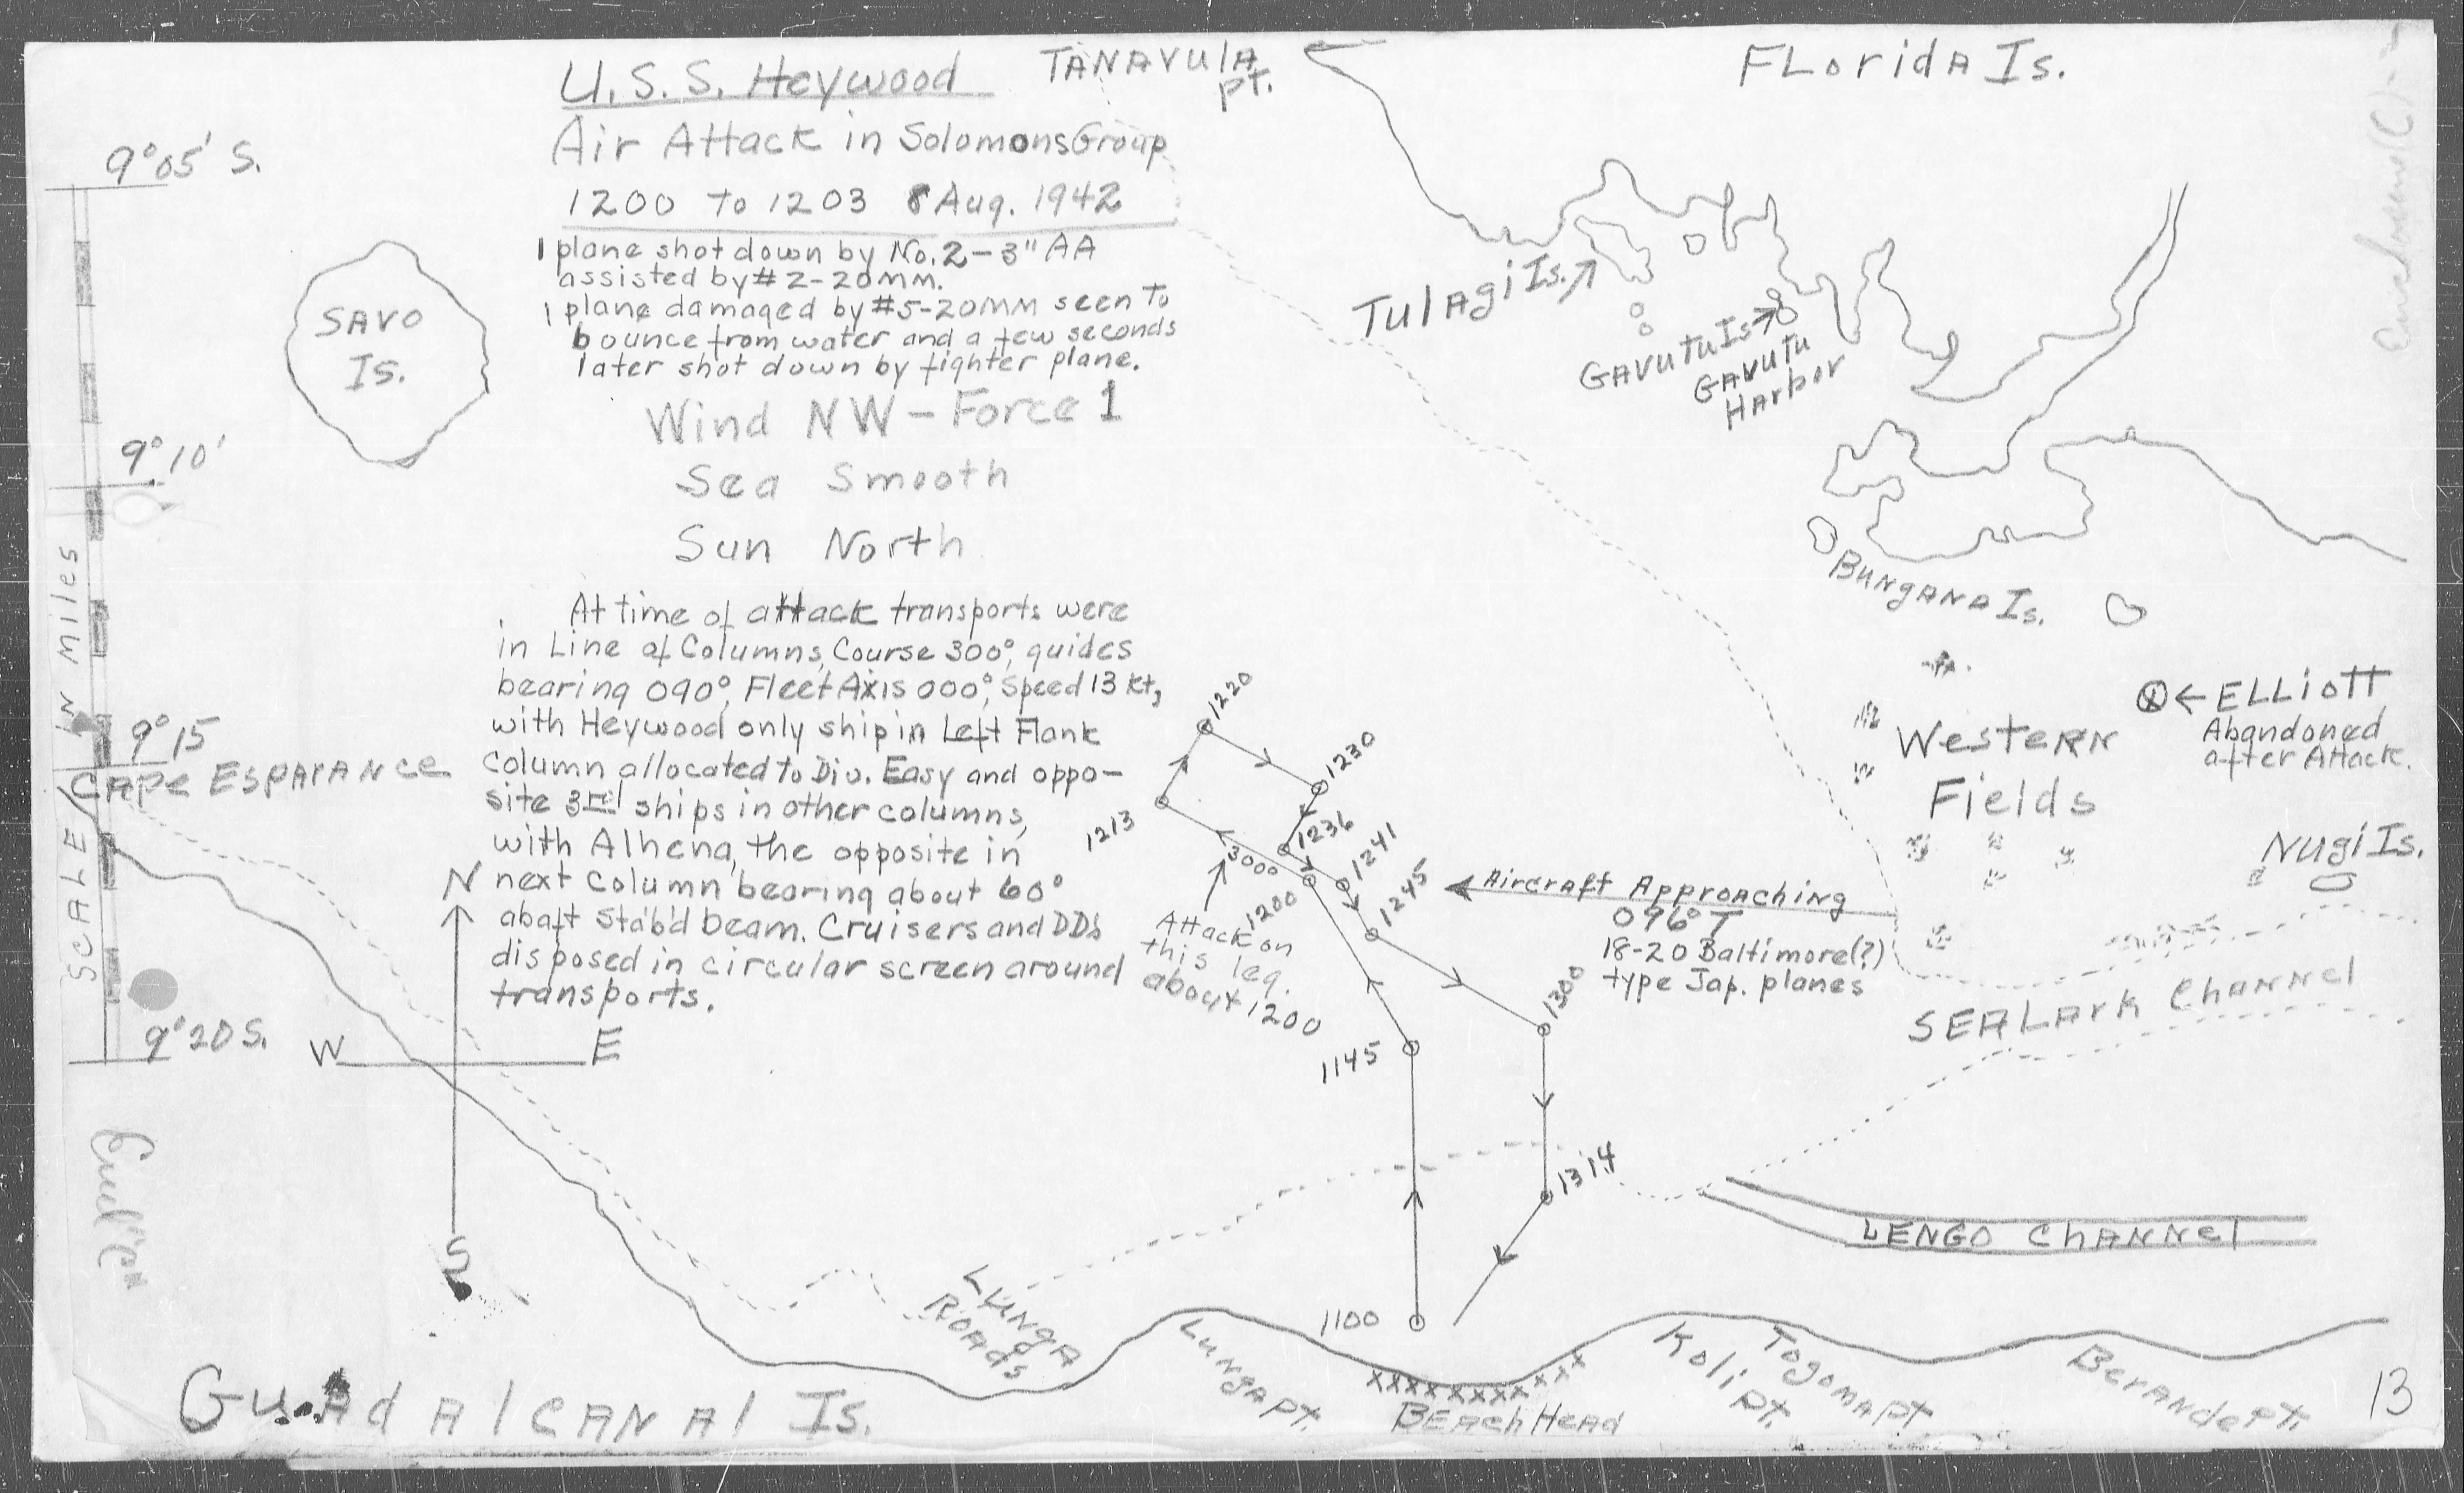 U.S.S. Heywood
Air Attack in Solomons Group
1200 to 1203 8 Aug. 1942
1 plane shot down by No. 2-3" AA
assisted by #2-20MM.
1 plane damaged by #5-20MM seen to
bounce from water and a few seconds
later shot down by fighter plane.
Wind NW - Force 1
Sea Smooth
Sun North
At time of attack transports were
in Line of Columns, Course 300°, guides
bearing 090°, Fleet Axis 000°, Speed 13 Kt,
with Heywood only ship in Left Flank
column allocated to Div. Easy and oppo-
site 3rd ships in other columns,
with Alhena, the opposite in
next column bearing about 60°
abaft Stab'd beam. Cruisers and DDs
disposed in circular screen around
transports.
TANAVULA
PT.
FLoridA Is.
9°05' S.
SAVO
IS.
9°10'
TulAgi Is.
GAVUTU Is
GAVUTU
HArbor
BUNgANA Is.
SCALE IN Miles
9°15
CAPE ESPARANCE
9°20 S.
N
W
E
S
1220
1230
1213
1236
1241
1245
3000
1200
Attack on
this leg.
about 1200
Aircraft Approaching
096° T
18-20 Baltimore(?)
type Jap. planes
1300
1145
1314
1100
ELLiott
Abandoned
after Attack.
Western
Fields
Nugi Is.
SEALArk ChANNel
LENGO ChANNel
LUNgA
ROAds
LUNgA PT.
BEACh HeAD
Koli
PT.
TogomA PT
BerANde PT.
GuAdAlCANAl Is.
13